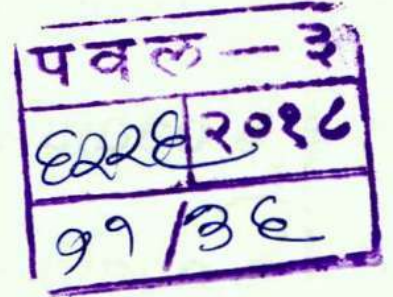 पवल - ३
६२२६ २०१८
११/३६